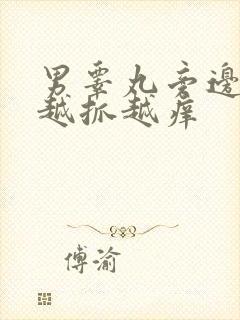 男睾丸旁邊
越抓越痒
傅渝